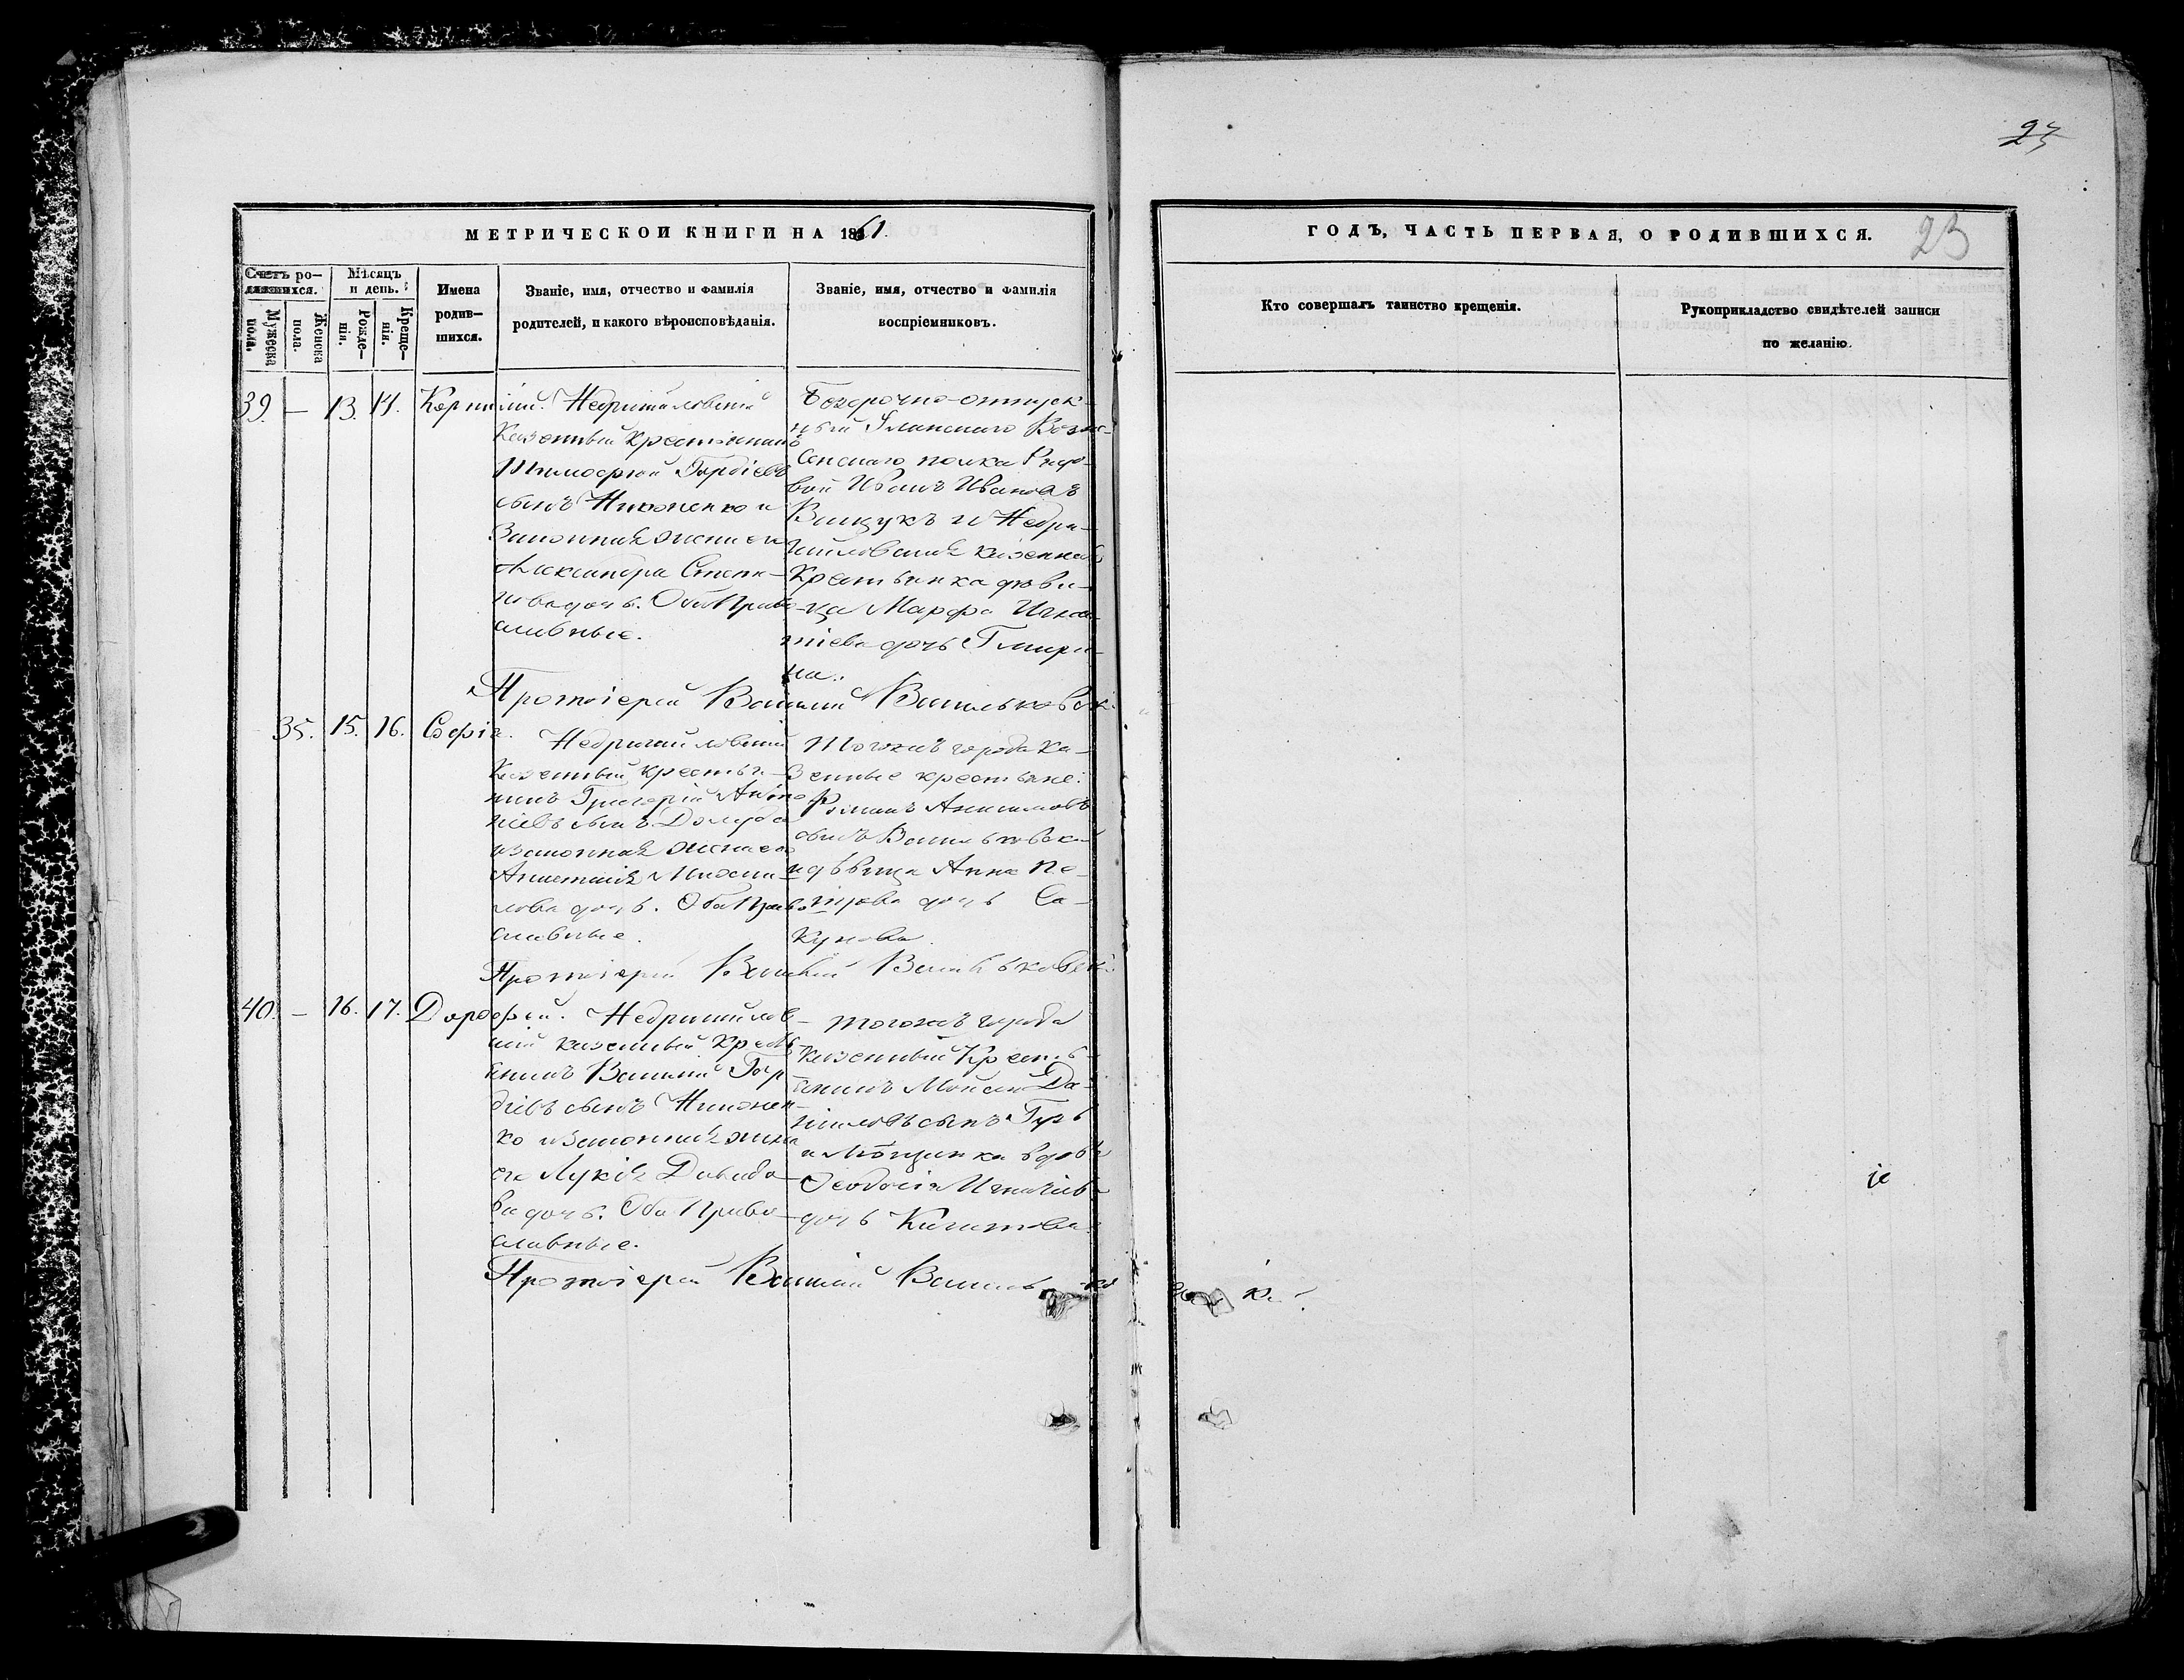 23
МЕТРИЧЕСКОЙ КНИГИ НА 1861.
ГОДЪ, ЧАСТЬ ПЕРВАЯ, О РОДИВШИХСЯ.
23
Счетъ ро-
дившихся.
Мужеска пола.
Женска пола.
Мѣсяцъ
и день.
Рожде-
нія.
Креще-
нія.
Имена
родив-
шихся.
Званіе, имя, отчество и фамилія
родителей, и какого вѣроисповѣданія.
Званіе, имя, отчество и фамилія
воспріемниковъ.
Кто совершалъ таинство крещенія.
Рукоприкладство свидѣтелей записи
по желанію.
39. — 13. 14. Корнилій.
Недригайловскій
Казенный крестьянинъ
Тимофей Гордіевъ
сынъ Никоненко и
Законная жена его
Александра Степа-
нова дочь. Оба Право-
славные.
Безсрочно-отпуск-
ный Уланскаго Возне-
сенскаго полка Рядо-
вой Иванъ Ивановъ
и Недри-
гайловская казенная
Крестьянка дѣви-
ца Марфа Игна-
тіева дочь
Протоіерей Василій Васильковск
35. 15. 16. Софія.
Недригайловскій
Казенный крестья-
нинъ Григорій
сынъ
и законная жена его
Анастасія
лова дочь. Оба Право-
славные.
Тогожъ города Ка-
зенные крестьяне:
Романъ
сынъ Васильковскі
и дѣвица Анна Пе-
трова дочь Са-
кунова.
Протоіерей Василій Васильковскі
40. — 16. 17. Дорофей.
Недригайлов-
скій казенный Кресть-
янинъ Василій Гор-
діевъ сынъ Никонен-
ко и Законная жена
его Лукія Давидо-
ва дочь. Оба Право-
славные.
Тогожъ города
Казенный Кресть-
янинъ Моисей Да-
ниловъ сынъ
и Мѣщанка вдова
Ѳеодосія Игнатіева
дочь
Протоіерей Василій Василько